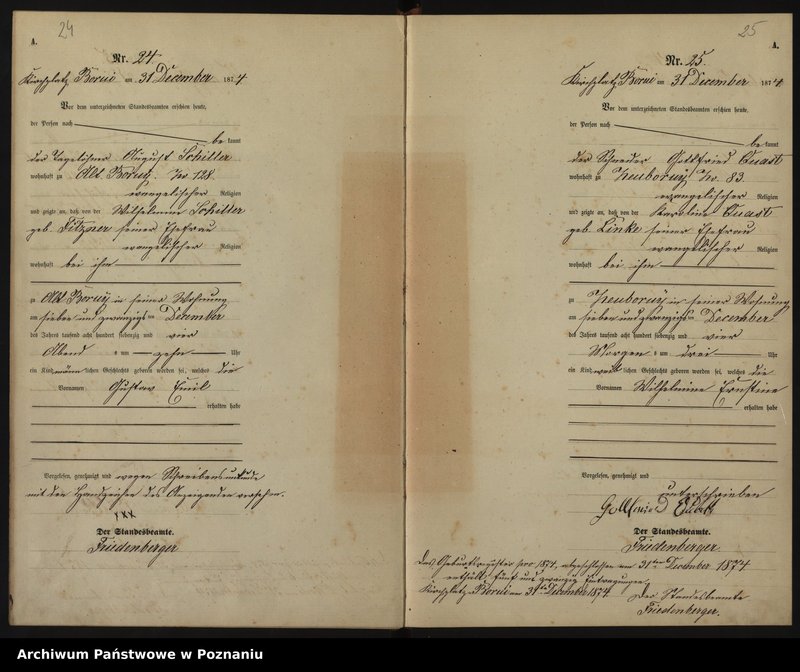 24
A.
Nr. 24.
Kirchplatz Borui am 31 December 1874
Vor dem unterzeichneten Standesbeamten erschien heute,
der Person nach
bekannt
der Tagelöhner August Schiller
wohnhaft zu Alt Boruy. No. 128.
evangelischer Religion
und zeigte an, daß von der Wilhelmine Schiller
geb. Fitzner seiner Ehefrau
evangelischer Religion
wohnhaft bei ihm
zu Alt Boruy in seiner Wohnung
am sieben und zwanzigsten December
des Jahres tausend acht hundert siebenzig und vier
Abend s um zehn Uhr
ein Kind männlichen Geschlechts geboren worden sei, welches die
Vornamen Gustav Emil
erhalten habe
Vorgelesen, genehmigt und wegen Schreibensunkunde
mit den Handzeichen des Anzeigenden versehen.
xxx
Der Standesbeamte.
Friedenberger
25
A.
Nr. 25.
Kirchplatz Borui am 31 December 1874.
Vor dem unterzeichneten Standesbeamten erschien heute,
der Person nach
bekannt
der Schneider Gottfried Quast
wohnhaft zu Neuboruy No. 83
evangelischer Religion
und zeigte an, daß von der Karoline Quast
geb. Linke seiner Ehefrau
evangelischer Religion
wohnhaft bei ihm
zu Neuboruy in seiner Wohnung
am sieben und zwanzigsten December
des Jahres tausend acht hundert siebenzig und vier
Morgen s um drei Uhr
ein Kind weiblichen Geschlechts geboren worden sei, welches die
Vornamen Wilhelmine Ernstine
erhalten habe
Vorgelesen, genehmigt und
unterschrieben
Gottfried
Der Standesbeamte.
Friedenberger.
Das Geburtsregister pro 1874, abgeschlossen am 31ten December 1874
enthält fünf und zwanzig Eintragungen.
Kirchplatz Borui am 31ten December 1874.
Der Standesbeamte
Friedenberger.
Archiwum Państwowe w Poznaniu